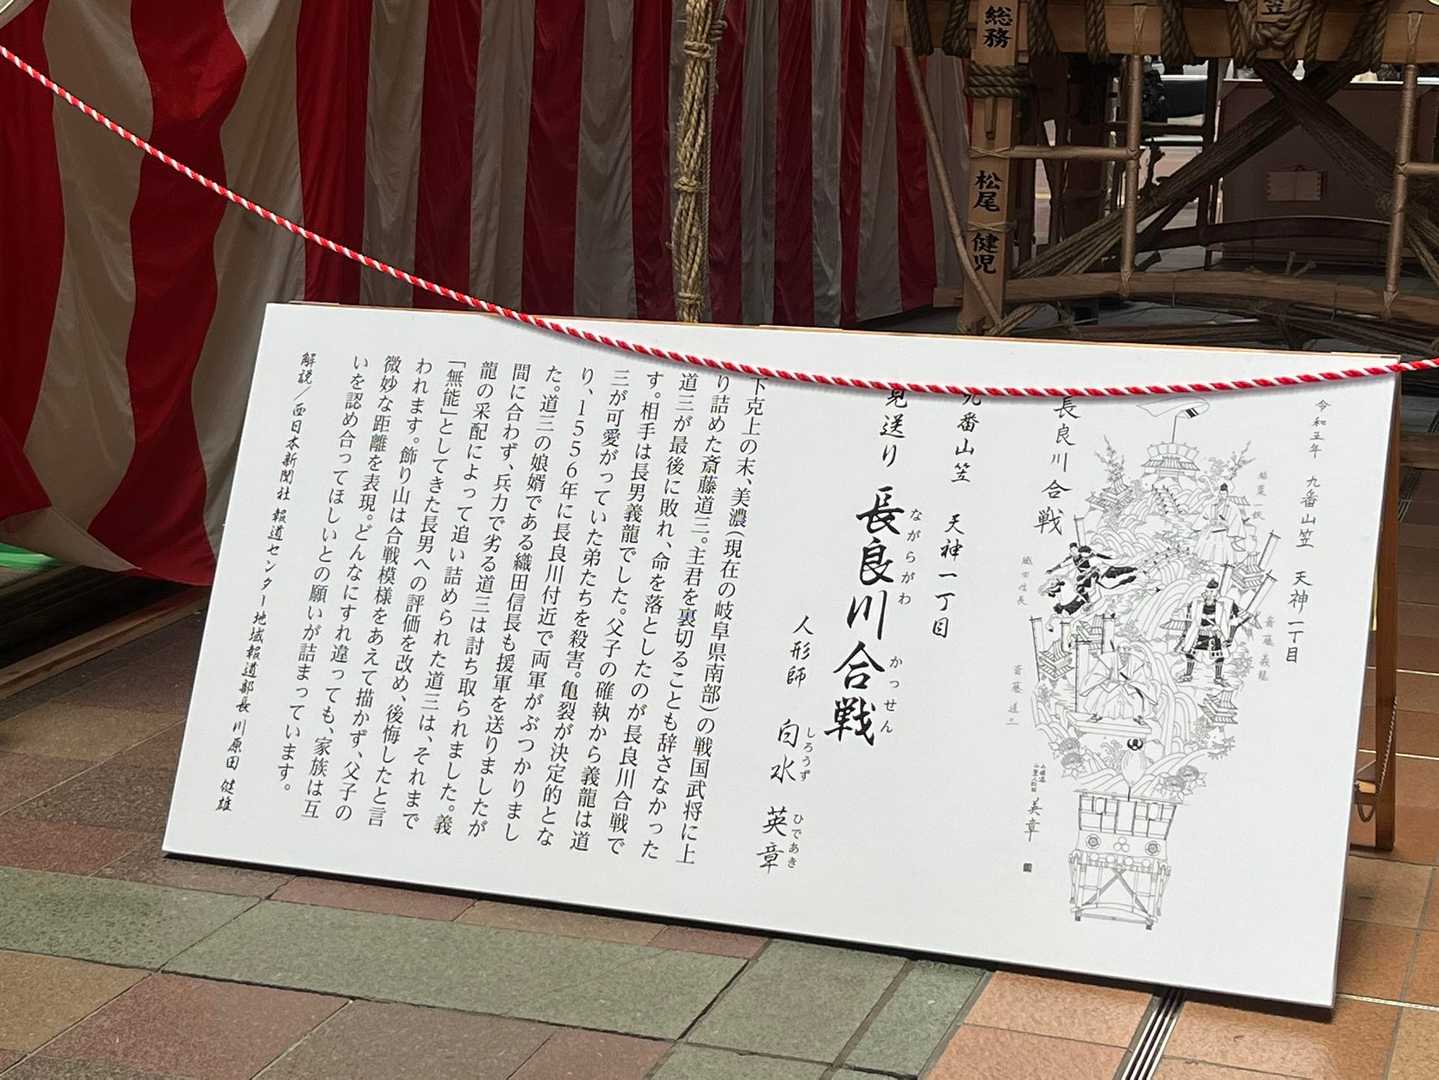 総務
松尾 健児
令和五年 九番山笠 天神一丁目
長良川合戦
稲葉一鉄
斎藤義龍
織田信長
斎藤道三
英章
九番山笠 天神一丁目
見送り 長良川合戦
ながらがわ かっせん
人形師 白水 英章
しろうず ひであき
下克上の末、美濃(現在の岐阜県南部)の戦国武将に上
り詰めた斎藤道三。主君を裏切ることも辞さなかった
道三が最後に敗れ、命を落としたのが長良川合戦で
す。相手は長男義龍でした。父子の確執から義龍は道
三が可愛がっていた弟たちを殺害。亀裂が決定的とな
り、1556年に長良川付近で両軍がぶつかりまし
た。道三の娘婿である織田信長も援軍を送りましたが
間に合わず、兵力で劣る道三は討ち取られました。義
龍の采配によって追い詰められた道三は、それまで
「無能」としてきた長男への評価を改め、後悔したと言
われます。飾り山は合戦模様をあえて描かず、父子の
微妙な距離を表現。どんなにすれ違っても、家族は互
いを認め合ってほしいとの願いが詰まっています。
解説/西日本新聞社 報道センター地域報道部長 川原田 健雄